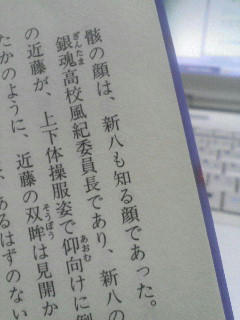 骸の顔は、新八も知る顔であった。
ぎんたま
銀魂高校風紀委員長であり、新八の
あおむ
の近藤が、上下体操服姿で仰向けに
そうぼう
たかのように、近藤の双眸は見開か
、あるはずのない